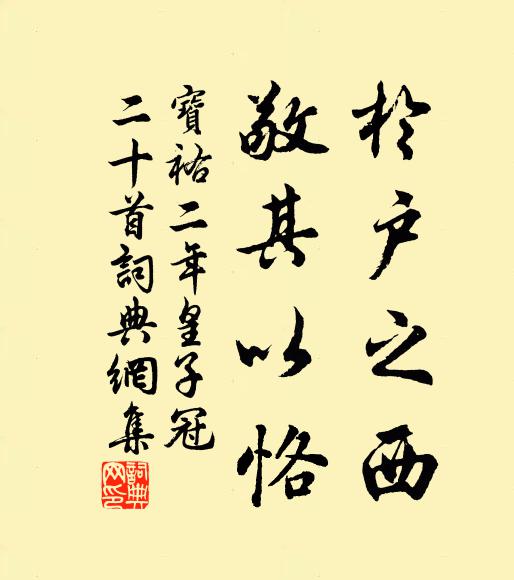 於戶之西
敬其以恪
寶祐二年皇子冠
二十首詞典網集
詞典
网印